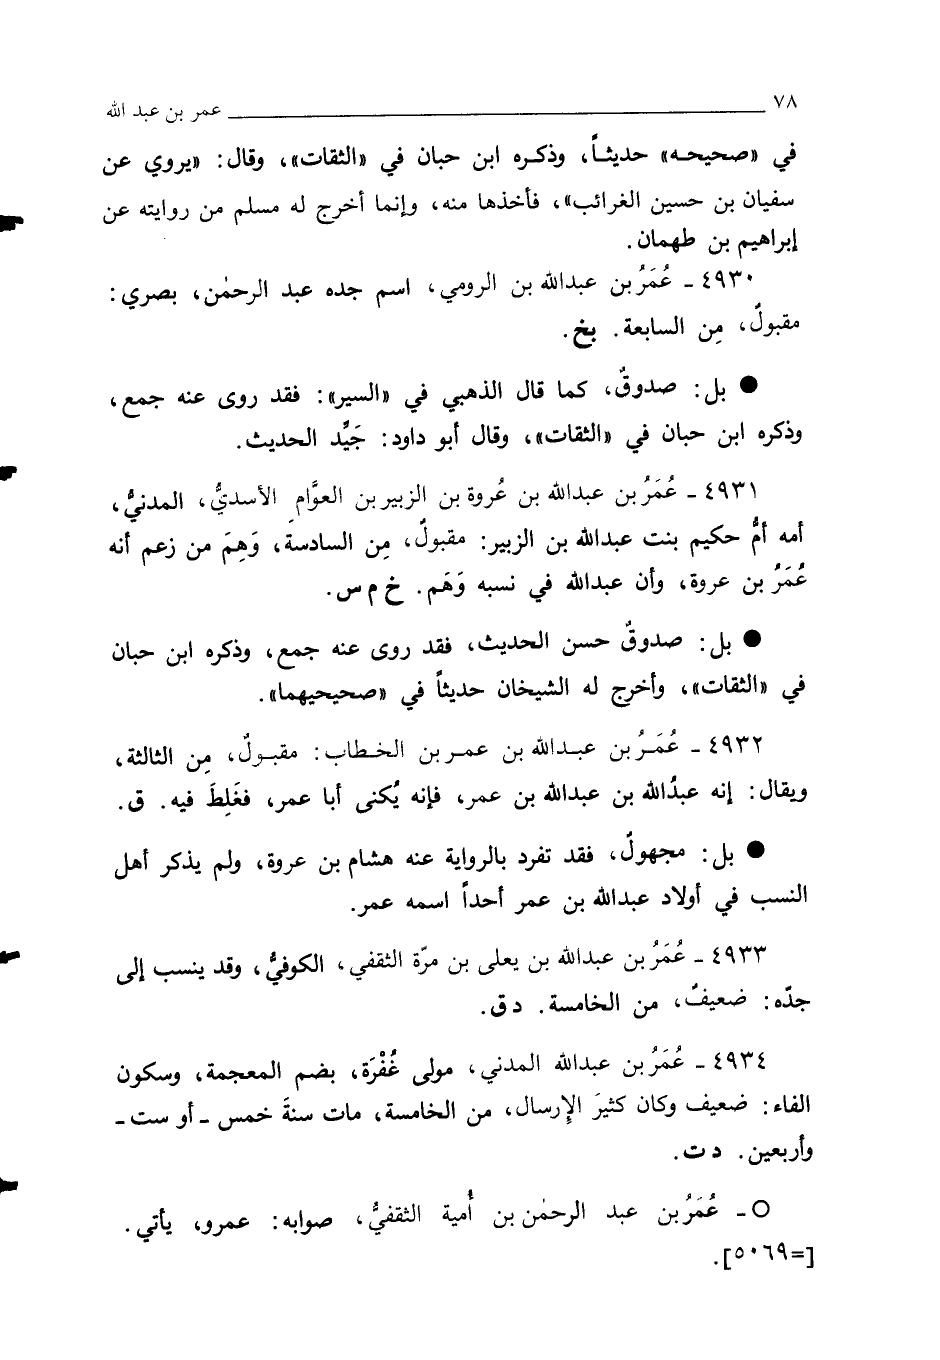 ٧٨ عمر بن عبد الله
في «صحيحـه» حديثـاً، وذكـره ابن حبان في «الثقات»، وقال: «يروي عن
سفيان بن حسين الغرائب»، فأخذها منه، وإنما أخرج له مسلم من روايته عن
إبراهيم بن طهمان.
٤٩٣٠ ـ عُمَرُ بن عبدالله بن الرومي، اسم جده عبد الرحمٰن، بصري:
مقبولٌ، مِن السابعة. بخ.
● بل: صدوقٌ، كما قال الذهبي في «السير»: فقد روى عنه جمع،
وذكره ابن حبان في «الثقات»، وقال أبو داود: جَيِّد الحديث.
٤٩٣١ ـ عُمَرُ بن عبدالله بن عُروة بن الزبير بن العوَّام الأسديُّ، المدنيُّ،
أمه أمُّ حكيم بنت عبدالله بن الزبير: مقبولٌ، مِن السادسة، وَهِمَ من زعم أنه
عُمَرُ بن عروة، وأن عبدالله في نسبه وَهَم. خ م س.
● بل: صدوقٌ حسن الحديث، فقد روى عنه جمع، وذكره ابن حبان
في «الثقات»، وأخرج له الشيخان حديثاً في «صحيحيهما».
٤٩٣٢ ـ عُمَـرُ بن عبـدالله بن عمـر بن الخـطاب: مقبـولٌ، مِن الثالثة،
ويقال: إنه عبدُالله بن عبدالله بن عمر، فإنه يُكنى أبا عمر، فغَلِطَ فيه. ق.
● بل: مجهولٌ، فقد تفرد بالرواية عنه هشام بن عروة، ولم يذكر أهل
النسب في أولاد عبدالله بن عمر أحداً اسمه عمر.
٤٩٣٣ ـ عُمَرُ بن عبدالله بن يعلى بن مرّة الثقفي، الكوفيُّ، وقد ينسب إلى
جدّه: ضعيفٌ، من الخامسة. د ق.
٤٩٣٤ ـ عُمَرُ بن عبدالله المدني، مولى غُفْرَة، بضم المعجمة، وسكون
الفاء: ضعيف وكان كثيرَ الإرسال، من الخامسة، مات سنةَ خمس ـ أو ست ـ
وأربعين. د ت.
○ ـ عُمَرُ بن عبد الرحمٰن بن أُمية الثقفيُّ، صوابه: عمرو، يأتي.
[=٥٠٦٩].